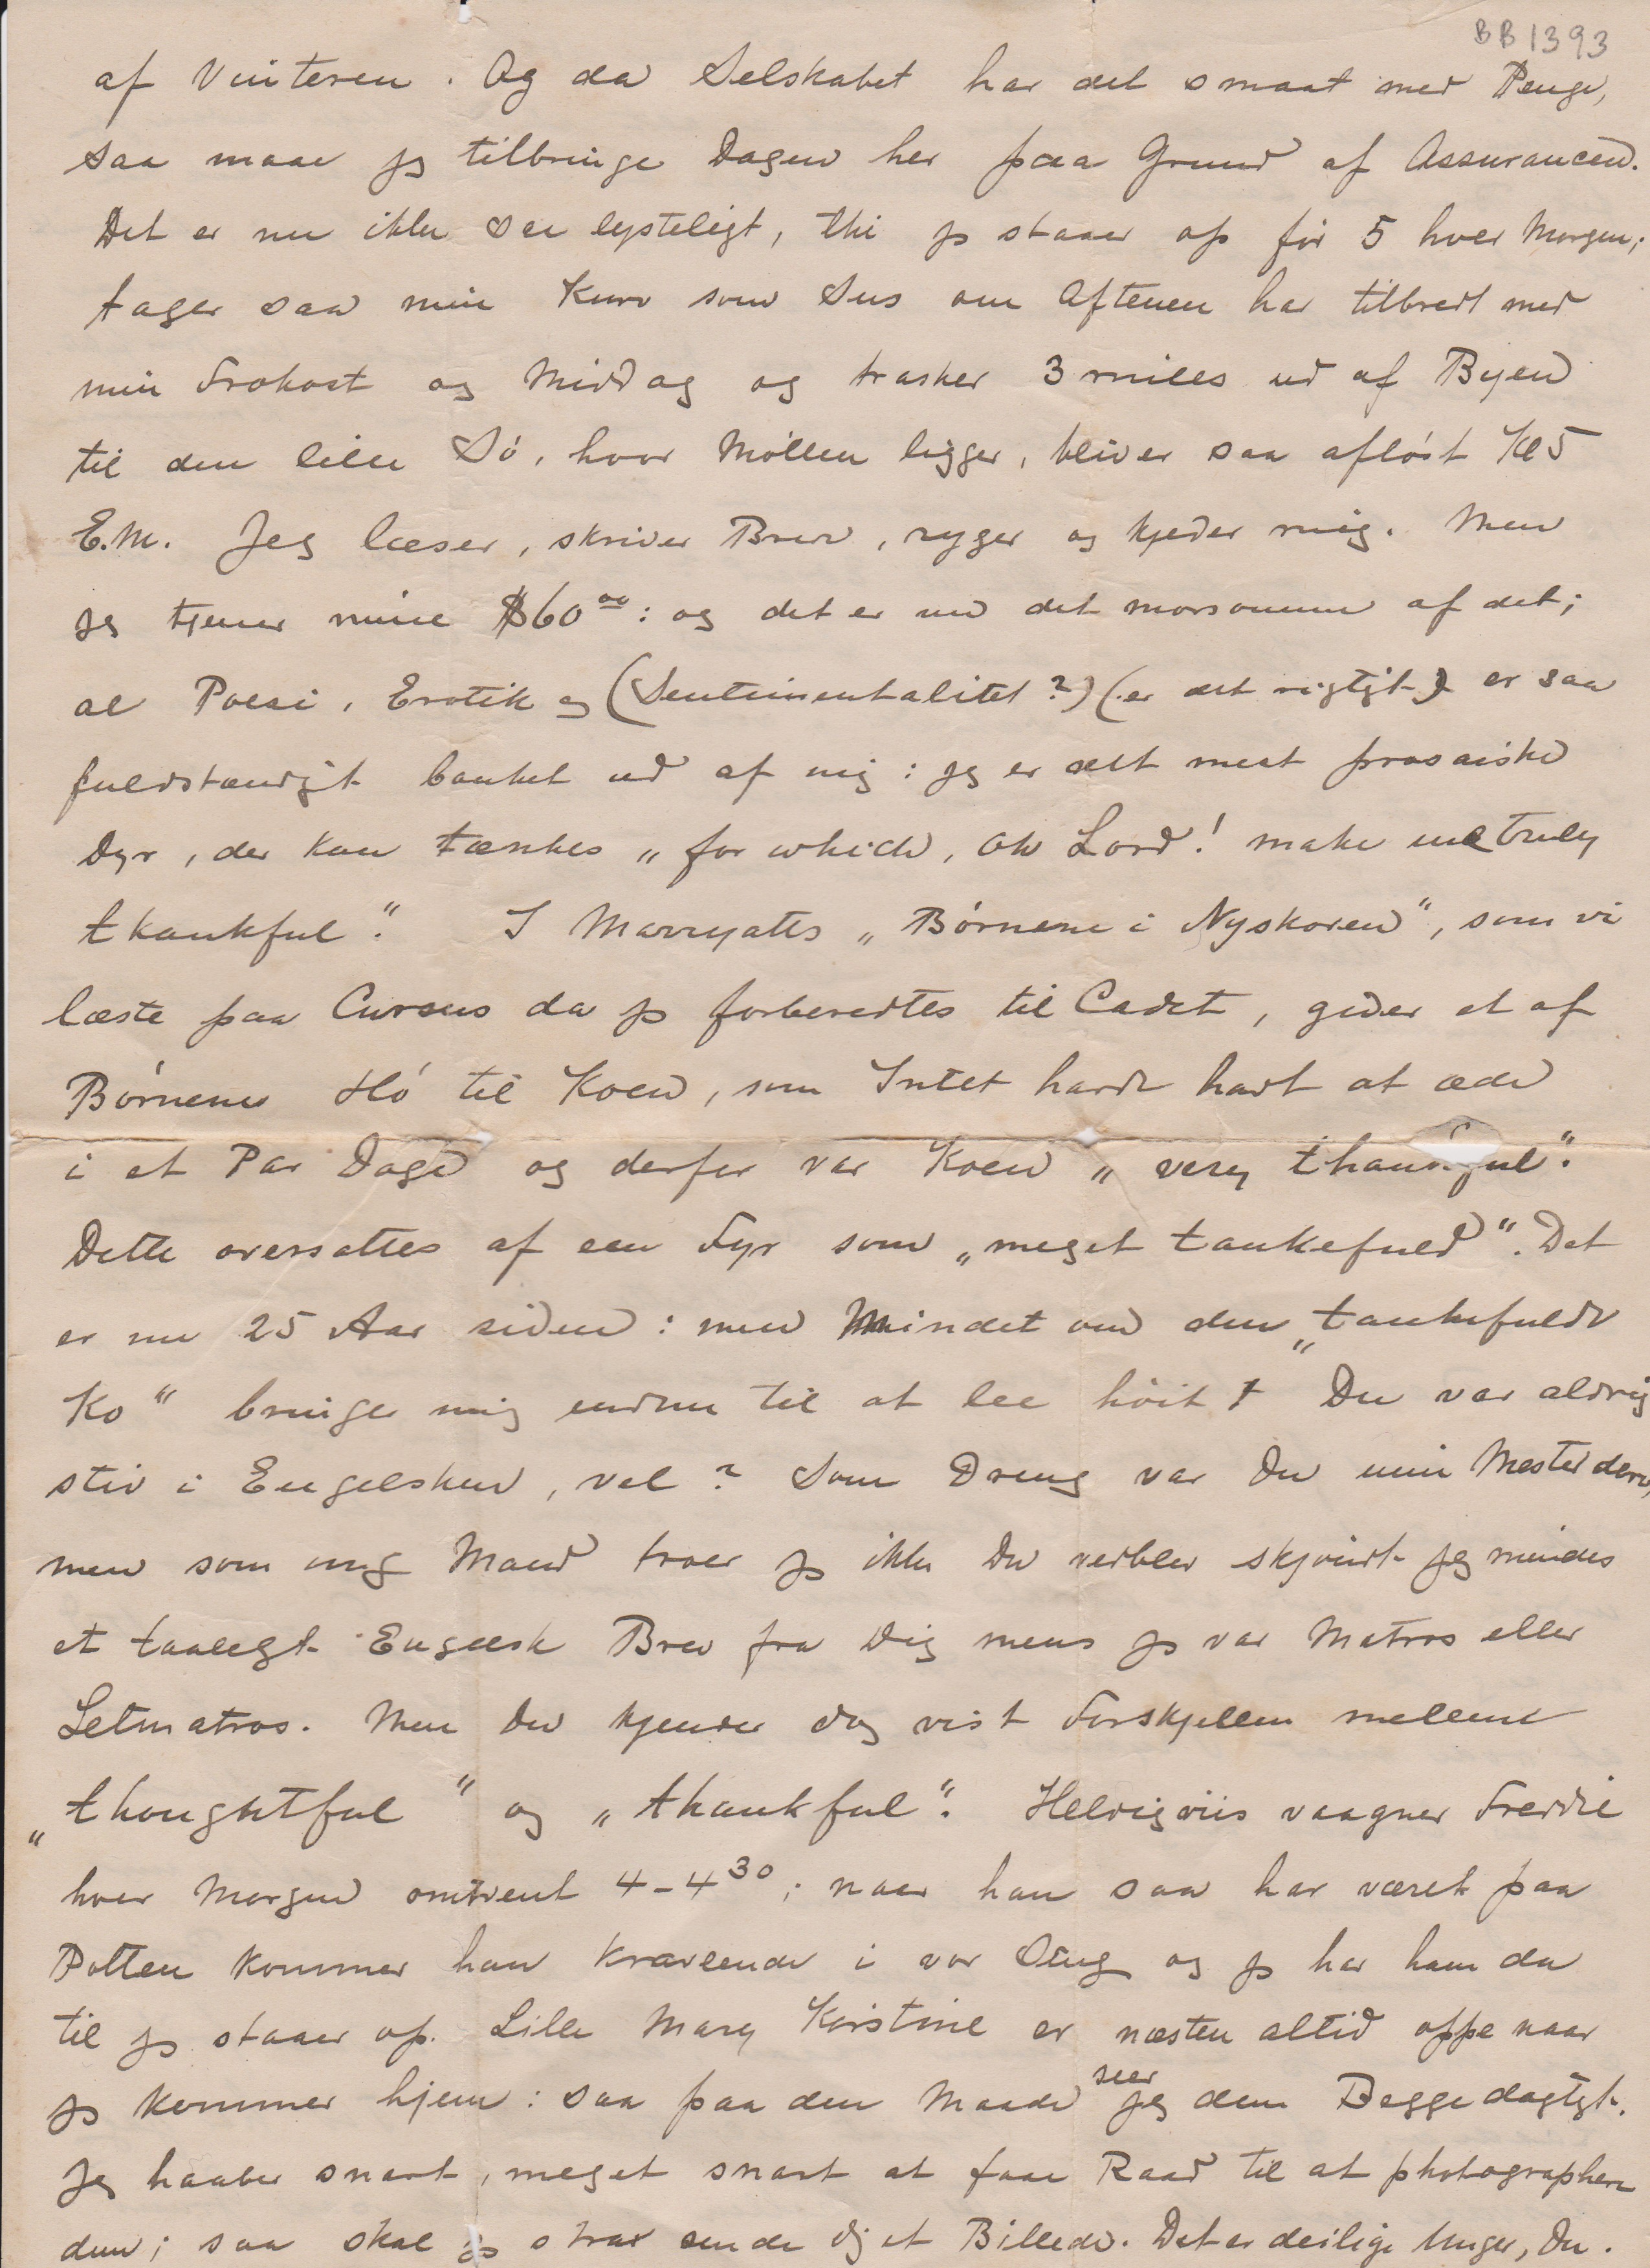 BB1393
af Vinteren. Og da Selskabet har det smaat med Penge,
saa maae jeg tilbringe Dagen her paa Grund af Assurancen.
Det er nu ikke saa lysteligt, thi jeg staaer op før 5 hver Morgen;
tager saa min Kurv som Sus om Aftenen har tilbredt med
min Frokost og Middag og trasker 3 miles ud af Byen
til den lille Sø, hvor Møllen ligger, bliver saa afløst Kl 5
E.M. Jeg læser, skriver Brev, ryger og kjeder mig. Men
jeg tjener mine $60⁰⁰: og det er nu det morsomme af det;
al Poesi, Erotik og (Sentimentalitet?) (er det rigtigt) er saa
fuldstændigt banket ud af mig: jeg er det mest prosaiske
Dyr, der kan tænkes „for which, Oh Lord! make me truly
thankful“. I Marryatts „Børnene i Nyskoven“, som vi
læste paa Cursus da jeg forberedtes til Cadet, giver et af
Børnene Hø til Koen, som Intet havde havt at æde
i et Par Dage og derfor var Koen „very thankful“.
Dette oversattes af een Fyr som „meget tankefuld“. Det
er nu 25 Aar siden: men Mindet om den „tankefulde
Ko“ bringer mig endnu til at lee høit. Du var aldrig
stiv i Engelsken, vel? Som Dreng var Du min Mester deri,
men som ung Mand troer jeg ikke Du vedblev skjøndt jeg mindes
et taaleligt Engelsk Brev fra Dig mens jeg var Matros eller
Letmatros. Men Du kjender dog vist Forskjellen mellem
„thoughtful“ og „thankful“. Heldigviis vaagner Freddie
hver Morgen omtrent 4-4³⁰; naar han saa har været paa
Potten kommer han kravlende i vor Seng og jeg har ham da
til jeg staaer op. Lille Mary Kirstine er næsten altid oppe naar
jeg kommer hjem: saa paa den Maade seer jeg dem Begge dagligt.
Jeg haaber snart, meget snart at faae Raad til at photographere
dem; saa skal jeg strax sende Dig et Billede. Det er deilige Unger, Du.